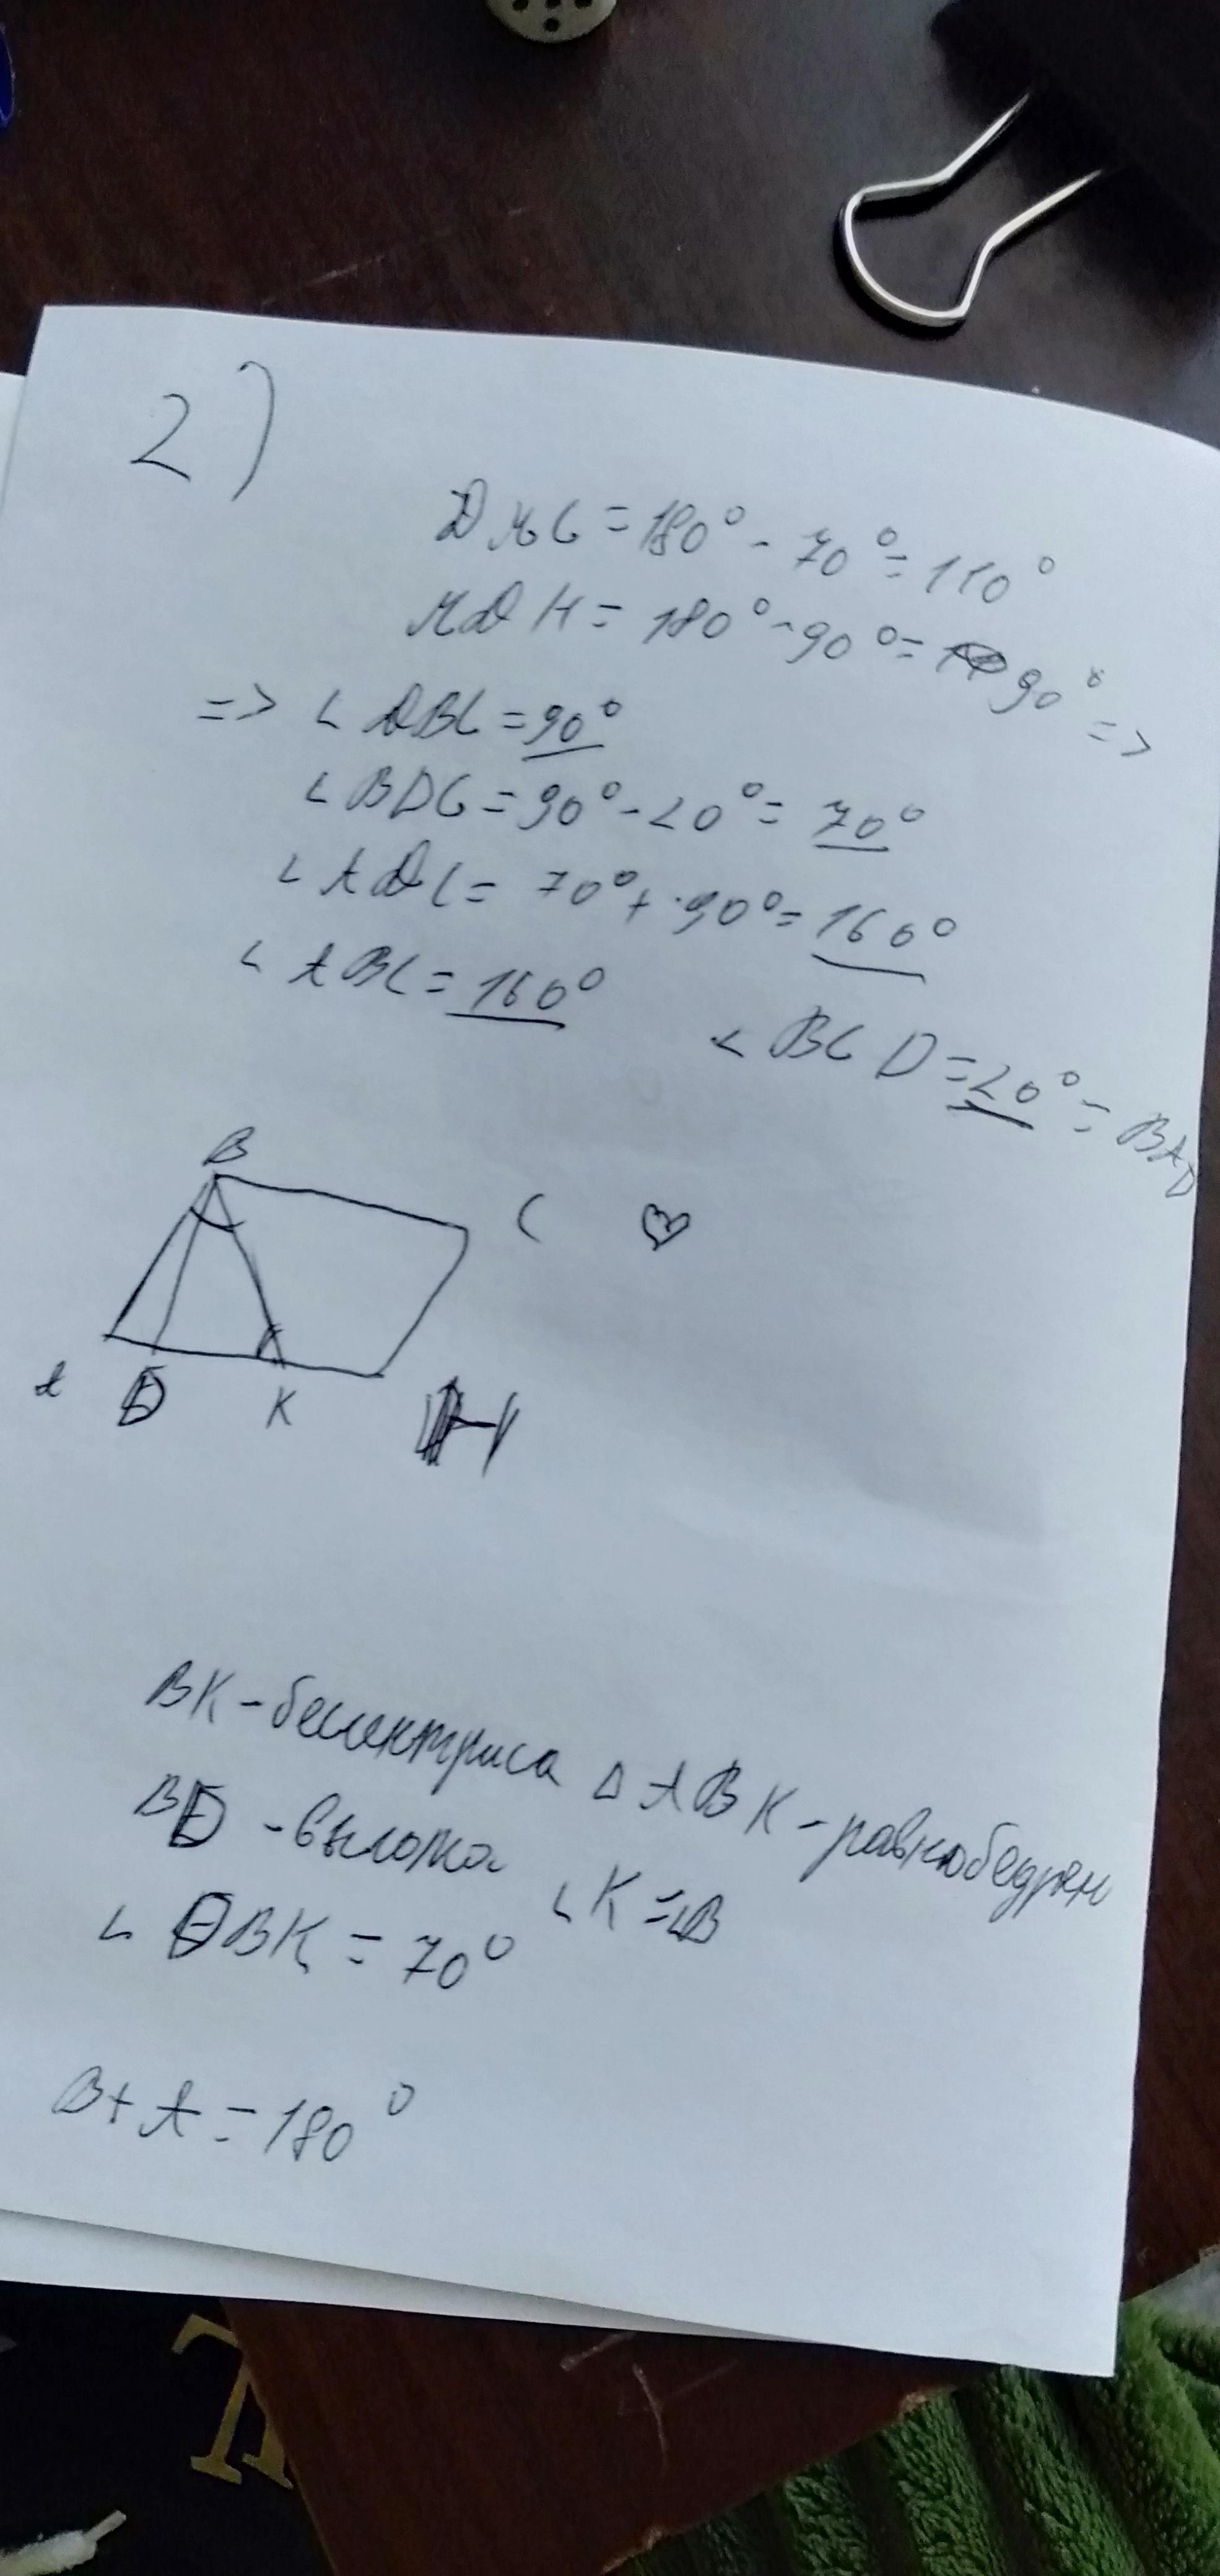 2)
DMC = 180° - 70° = 110°
MDH = 180° - 90° = 90° =>
=> ∠ DBC = 90°
∠ BDC = 90° - 20° = 70°
∠ ADC = 70° + 90° = 160°
∠ ABC = 160°
∠ BCD = 20° = BAD
B
C
A E K
BK - бесектриса △ ABK - равнобедрен
BE - высота ∠K = ∠B
∠ EBK = 70°
B + A = 180°